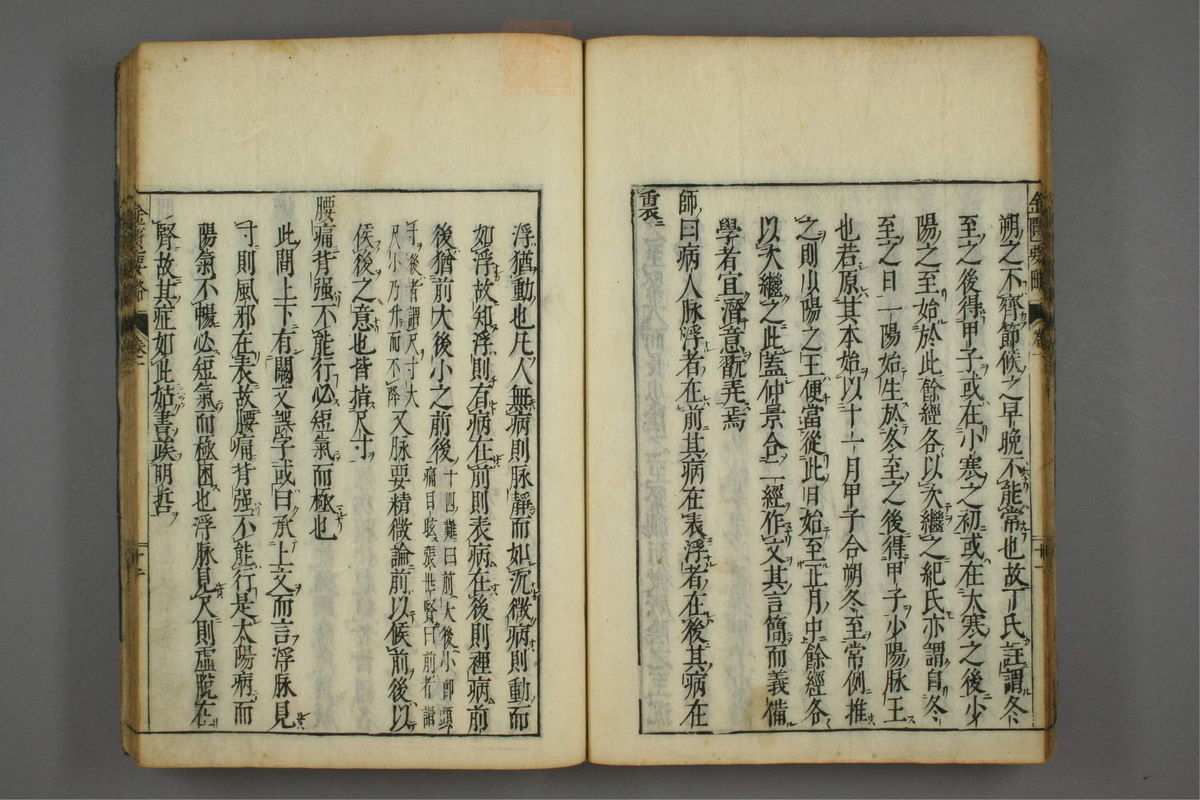 朔之不齊節候之早晚不能常也故丁氏註謂冬
至之後得甲子或在小寒之初或在大寒之後少
陽之至始於此餘經各以次繼之紀氏亦謂自冬
至之日一陽始生於冬至之後得甲子少陽脉王
也若原其本始以十一月甲子合朔冬至常例推
之則少陽之王便當從此日始至正月中餘經各
以次繼之此蓋仲景合一經作文其言簡而義備
學者宜潛意翫弄焉
師曰病人脉浮者在前其病在表浮者在後其病在
裏
浮猶動也凡人無病則脉靜而如沉微病則動而
如浮故知浮則有病在前則表病在後則裡病前
後猶前大後小之前後
十四難曰前大後小即頭
痛目眩張世賢曰前者謂
寸後者謂尺寸大
尺小乃升而不降
又脉要精微論前以候前後以
候後之意也皆指尺寸
腰痛背强不能行必短氣而極也
此間上下有闕文誤字或曰承上文而言浮脉見
寸則風邪在表故腰痛背强不能行是太陽病而
陽氣不暢必短氣而極困也浮脉見尺則虛脫在
腎故其症如此姑書俟明哲
金匱要略
卷一
十一
金匱要略
卷一
十二